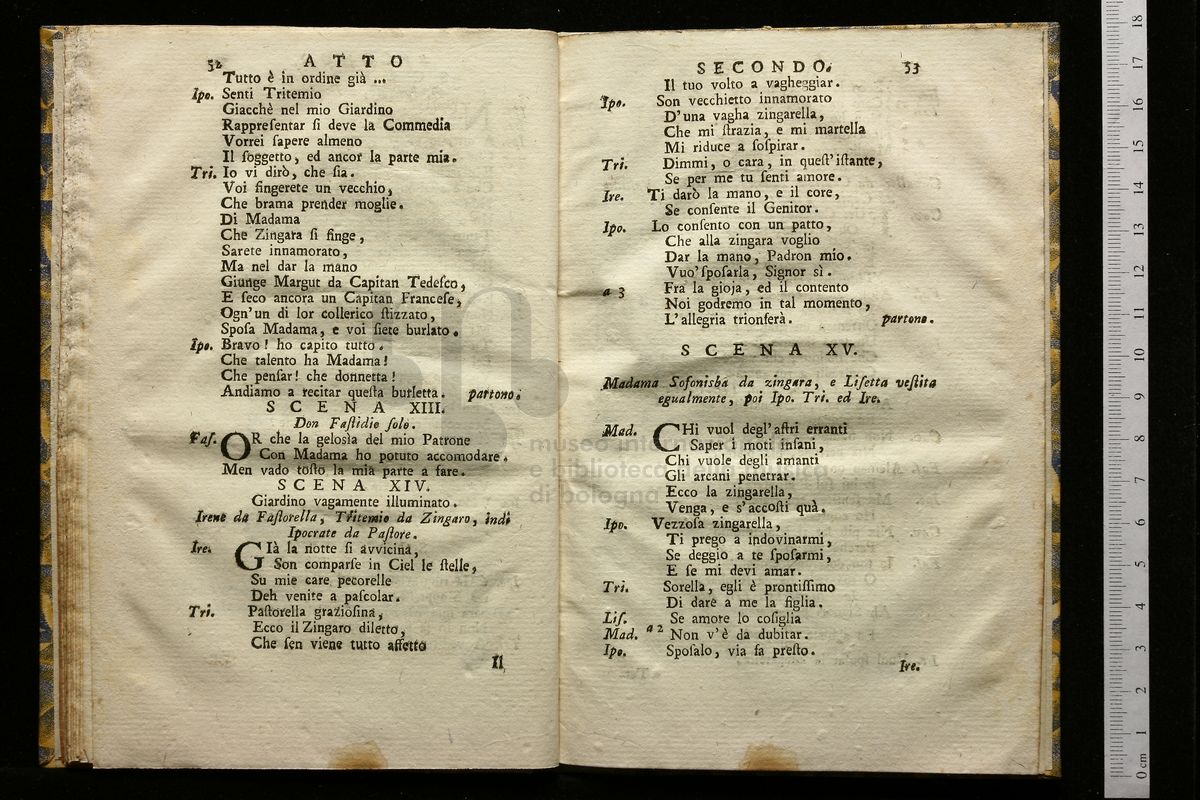 52 ATTO
Tutto è in ordine già ...
Ipo. Senti Tritemio
Giacchè nel mio Giardino
Rappreſentar ſi deve la Commedia
Vorrei ſapere almeno
Il ſoggetto, ed ancor la parte mia.
Tri. Io vi dirò, che ſia.
Voi fingerete un vecchio,
Che brama prender moglie.
Di Madama
Che Zingara ſi finge,
Sarete innamorato,
Ma nel dar la mano
Giunge Margut da Capitan Tedeſco,
E ſeco ancora un Capitan Franceſe,
Ogn'un di lor collerico ſtizzato,
Spoſa Madama, e voi ſiete burlato.
Ipo. Bravo! ho capito tutto.
Che talento ha Madama!
Che penſar! che donnetta!
Andiamo a recitar queſta burletta. partono.
SCENA XIII.
Don Faſtidio ſolo.
Faſ. OR che la geloſia del mio Patrone
Con Madama ho potuto accomodare.
Men vado toſto la mia parte a fare.
SCENA XIV.
Giardino vagamente illuminato.
Irene da Paſtorella, Tritemio da Zingaro, indi
Ipocrate da Paſtore.
Ire. GIà la notte ſi avvicina,
Son comparſe in Ciel le ſtelle,
Su mie care pecorelle
Deh venite a paſcolar.
Tri. Paſtorella grazioſina,
Ecco il Zingaro diletto,
Che ſen viene tutto affetto
Il
SECONDO. 53
Il tuo volto a vagheggiar.
Ipo. Son vecchietto innamorato
D'una vagha zingarella,
Che mi ſtrazia, e mi martella
Mi riduce a ſoſpirar.
Tri. Dimmi, o cara, in queſt'iſtante,
Se per me tu ſenti amore.
Ire. Ti darò la mano, e il core,
Se conſente il Genitor.
Ipo. Lo conſento con un patto,
Che alla zingara voglio
Dar la mano, Padron mio.
Vuo' ſpoſarla, Signor sì.
a 3 Fra la gioja, ed il contento
Noi godremo in tal momento,
L'allegria trionferà. partono.
SCENA XV.
Madama Sofonisba da zingara, e Liſetta veſtita
egualmente, poi Ipo. Tri. ed Ire.
Mad. CHi vuol degl'aſtri erranti
Saper i moti inſani,
Chi vuole degli amanti
Gli arcani penetrar.
Ecco la zingarella,
Venga, e s'accoſti quà.
Ipo. Vezzoſa zingarella,
Ti prego a indovinarmi,
Se deggio a te ſpoſarmi,
E ſe mi devi amar.
Tri. Sorella, egli è prontiſſimo
Di dare a me la figlia.
Liſ. Se amore lo coſiglia
Mad. a 2 Non v'è da dubitar.
Ipo. Spoſalo, via fa preſto.
Ire.
museo internazionale
e biblioteca della musica
di bologna
0 cm 1 2 3 4 5 6 7 8 9 10 11 12 13 14 15 16 17 18